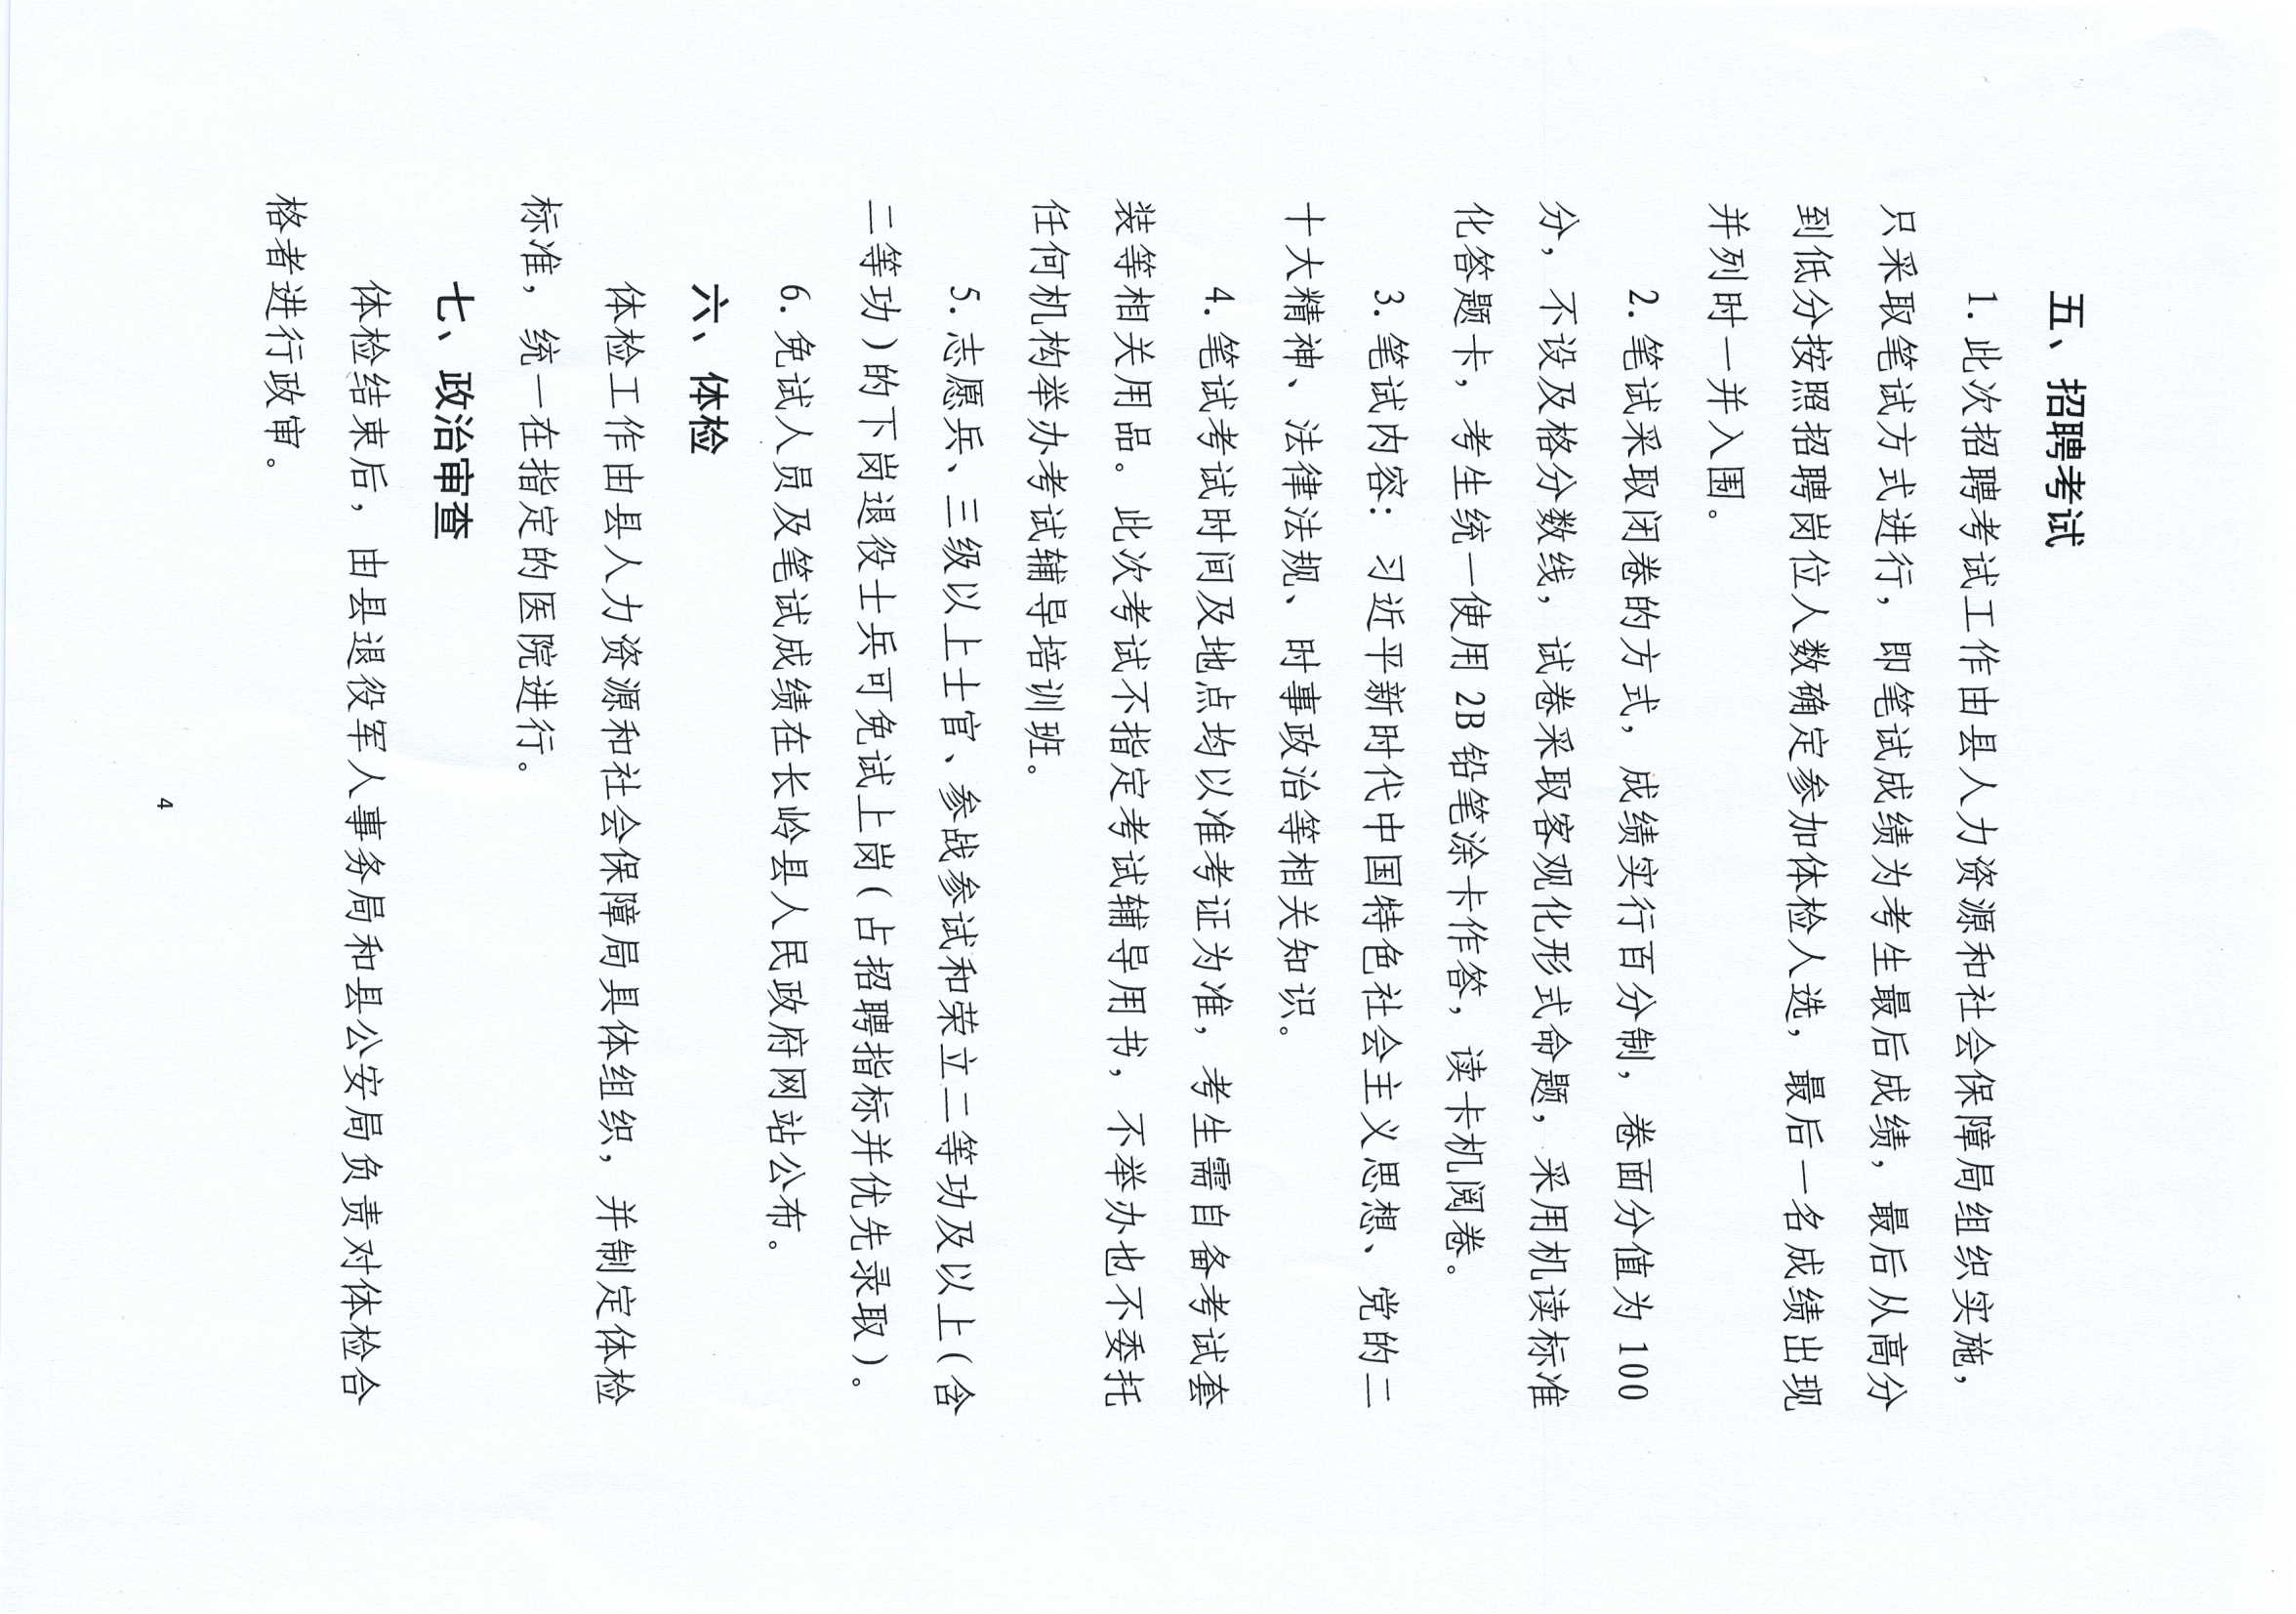 五、招聘考试
1. 此次招聘考试工作由县人力资源和社会保障局组织实施，
只采取笔试方式进行，即笔试成绩为考生最后成绩，最后从高分
到低分按照招聘岗位人数确定参加体检人选，最后一名成绩出现
并列时一并入围。
2. 笔试采取闭卷的方式，成绩实行百分制，卷面分值为 100
分，不设及格分数线，试卷采取客观化形式命题，采用机读标准
化答题卡，考生统一使用 2B 铅笔涂卡作答，读卡机阅卷。
3. 笔试内容：习近平新时代中国特色社会主义思想、党的二
十大精神、法律法规、时事政治等相关知识。
4. 笔试考试时间及地点均以准考证为准，考生需自备考试套
装等相关用品。此次考试不指定考试辅导用书，不举办也不委托
任何机构举办考试辅导培训班。
5. 志愿兵、三级以上士官、参战参试和荣立二等功及以上（含
二等功）的下岗退役士兵可免试上岗（占招聘指标并优先录取）。
6. 免试人员及笔试成绩在长岭县人民政府网站公布。
六、体检
体检工作由县人力资源和社会保障局具体组织，并制定体检
标准，统一在指定的医院进行。
七、政治审查
体检结束后，由县退役军人事务局和县公安局负责对体检合
格者进行政审。
4